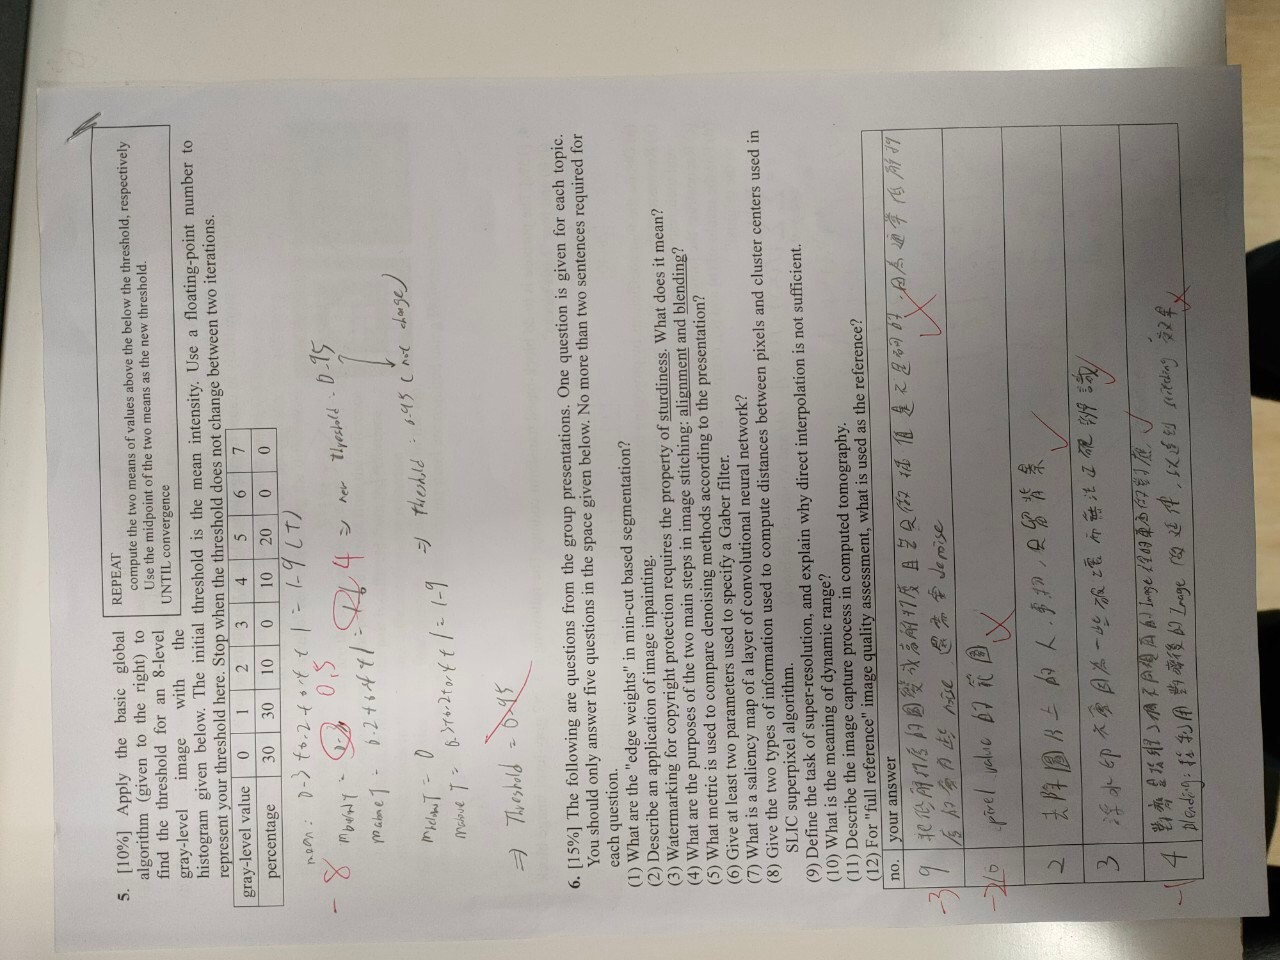 5. [10%] Apply the basic global
algorithm (given to the right) to
find the threshold for an 8-level
gray-level image with the
REPEAT
compute the two means of values above the below the threshold, respectively
Use the midpoint of the two means as the new threshold.
UNTIL convergence
histogram given below. The initial threshold is the mean intensity. Use a floating-point number to
represent your threshold here. Stop when the threshold does not change between two iterations.
gray-level value 0 1 2 3 4 5 6 7
percentage 30 30 10 0 10 20 0 0
mean: 0.3 + 0.2 + 0.4 + 1 = 1.9 (T)
-8
0.5
4 ⇒ new threshold = 0.95
mabove T = 0.2+0.4+1 =
mbelow T = 0
mabove T = 0.3+0.2+0.4+1 = 1.9
⇒ threshold = 0.95 (not change)
⇒ Threshold = 0.95
6. [15%] The following are questions from the group presentations. One question is given for each topic.
You should only answer five questions in the space given below. No more than two sentences required for
each question.
(1) What are the "edge weights" in min-cut based segmentation?
(2) Describe an application of image inpainting.
(3) Watermarking for copyright protection requires the property of sturdiness. What does it mean?
(4) What are the purposes of the two main steps in image stitching: alignment and blending?
(5) What metric is used to compare denoising methods according to the presentation?
(6) Give at least two parameters used to specify a Gaber filter.
(7) What is a saliency map of a layer of convolutional neural network?
(8) Give the two types of information used to compute distances between pixels and cluster centers used in
SLIC superpixel algorithm.
(9) Define the task of super-resolution, and explain why direct interpolation is not sufficient.
(10) What is the meaning of dynamic range?
(11) Describe the image capture process in computed tomography.
(12) For "full reference" image quality assessment, what is used as the reference?
no. your answer
-3 9 把低解析度的圖變成高解析度且若只做插值是不足夠的,因為通常低解析
度的會有些 noise 還需要 denoise
10 pixel value 的範圍
2 去除圖片上的人、事物,只留背景
3 浮水印不會因為一些破壞而無法正確辨識
-1 4 對齊是指把2個不同視角的Image 相同東西做對應
blending: 指利用對齊後的Image 做延伸,以達到 stitching 效果